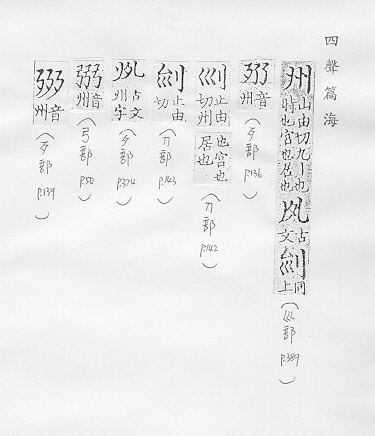 四聲篇海
州 止由切九丨也時也宮也居也 古文 同上 (巛部 P.389)
音州 (部 P.136)
止由切州也宮也居也 (刀部 P.142)
止由切 (刀部 P.143)
古文州字 (夕部 P.374)
音州 (弓部 P.50)
音州 (部 P.139)